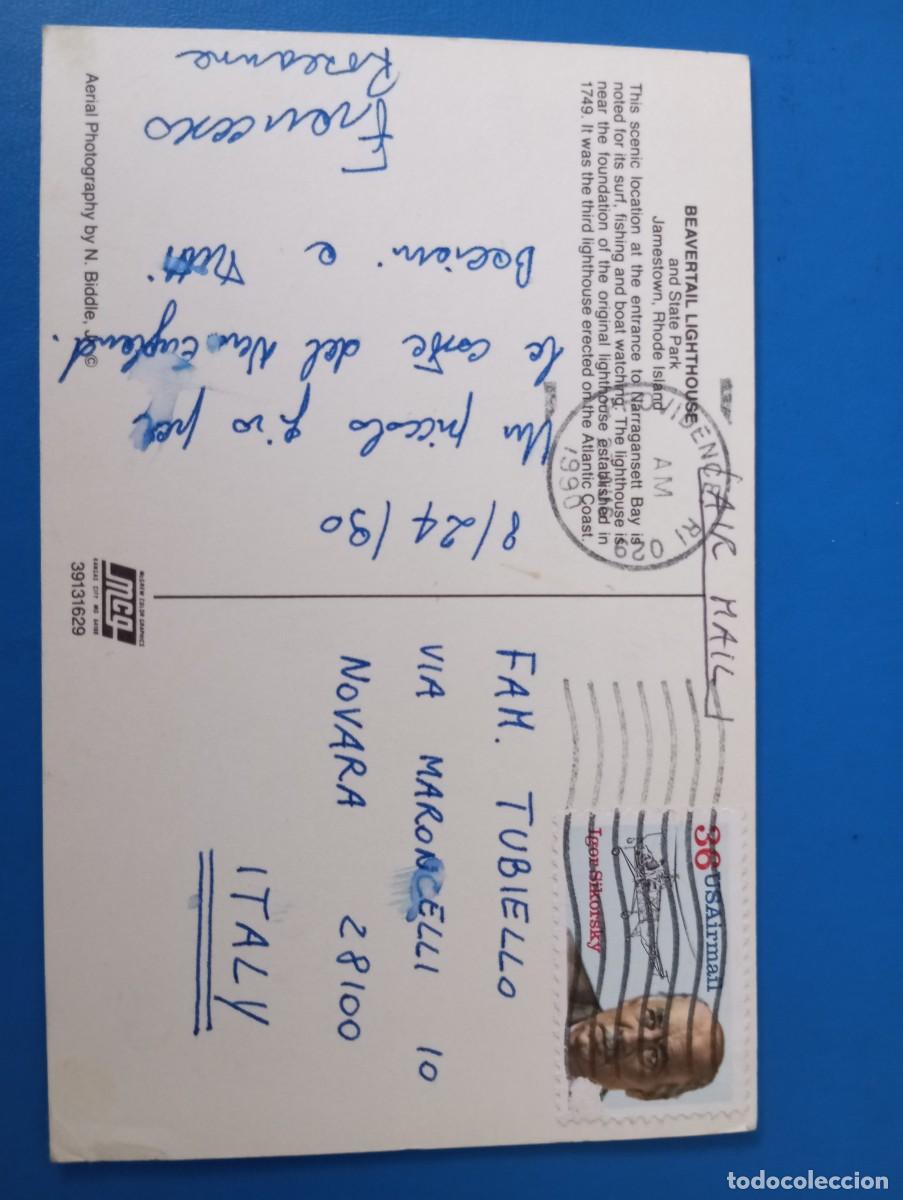 BEAVERTAIL LIGHTHOUSE
and State Park
Jamestown, Rhode Island
This scenic location at the entrance to Narragansett Bay is
noted for its surf, fishing and boat watching. The lighthouse is
near the foundation of the original lighthouse established in
1749. It was the third lighthouse erected on the Atlantic Coast.
AIR MAIL
RI
AM
1990
8/24/90
Un piccolo giro per
le coste del New England.
Bacioni e
Tutti
Francesco
Roseanne
Aerial Photography by N. Biddle, Jr. ©
McGREW COLOR GRAPHICS
mcg
KANSAS CITY MO 64108
39131629
36 USAirmail
Igor Sikorsky
FAM. TUBIELLO
VIA MARONCELLI 10
NOVARA 28100
ITALY
todocoleccion